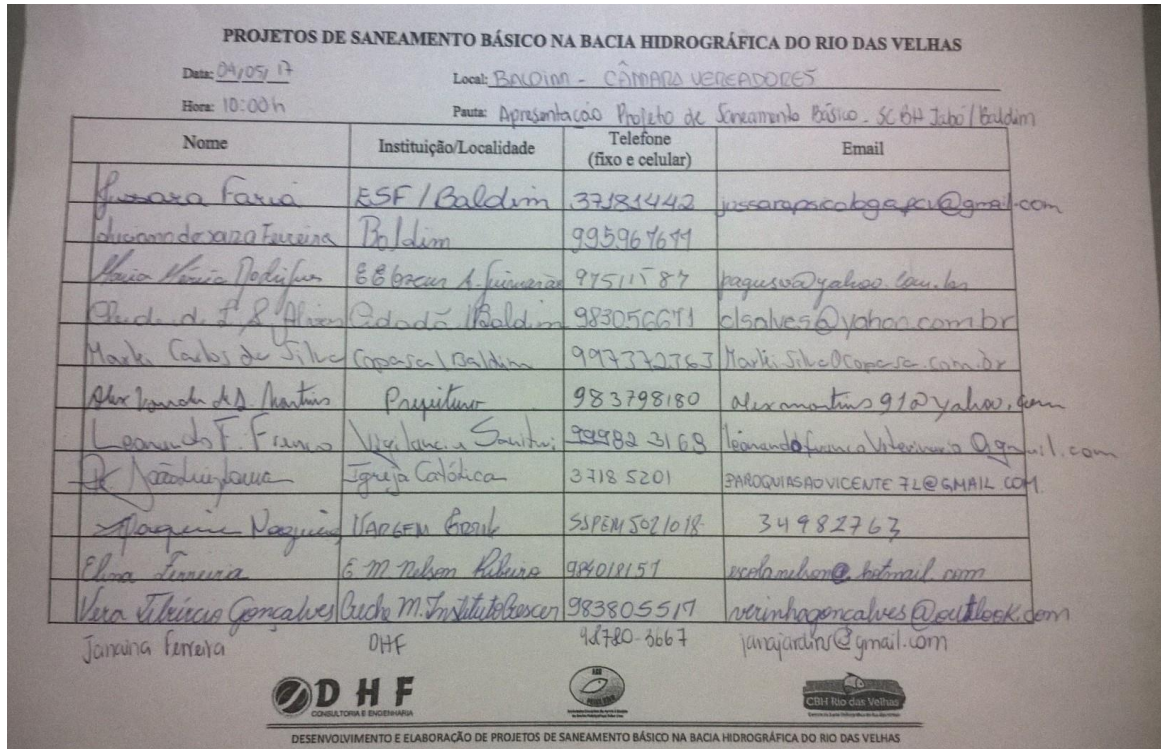 PROJETOS DE SANEAMENTO BÁSICO NA BACIA HIDROGRÁFICA DO RIO DAS VELHAS
Data: 04/05/17 Local: BALDIM - CÂMARA VEREADORES
Hora: 10:00h Pauta: Apresentação Projeto de Saneamento Básico - SCBH Jabó/Baldim
Nome Instituição/Localidade Telefone (fixo e celular) Email
Jussara Faria ESF/Baldim 37181442 jussarapsicologafcv@gmail.com
Luciano de Souza Ferreira Baldim
Maria Márcia Rodrigues 97511587
Cidadã/Baldim clsalves@yahoo.com.br
Marki Carlos da Silva Copasa/Baldim 997372763 Marki.Silva@copasa.com.br
Martins 983798180 alexmartins91@yahoo.com
Leonardo F. Franco Vigilancia 99982 3169 leonardofrancoveterinario@gmail.com
Igreja Católica 3718 5201 PAROQUIASAOVICENTE7L@GMAIL.COM
VARGEM 34982763
Elma Ferreira E M Nelson Ribeiro 984018157 hotmail.com
Vera Tibúrcio Gonçalves Creche M. Instituto Crescer 983805517 verinhagoncalves@outlook.com
Janaina Ferreira DHF 98780-3667 janajardins@gmail.com
DHF
CONSULTORIA E ENGENHARIA
CBH Rio das Velhas
DESENVOLVIMENTO E ELABORAÇÃO DE PROJETOS DE SANEAMENTO BÁSICO NA BACIA HIDROGRÁFICA DO RIO DAS VELHAS